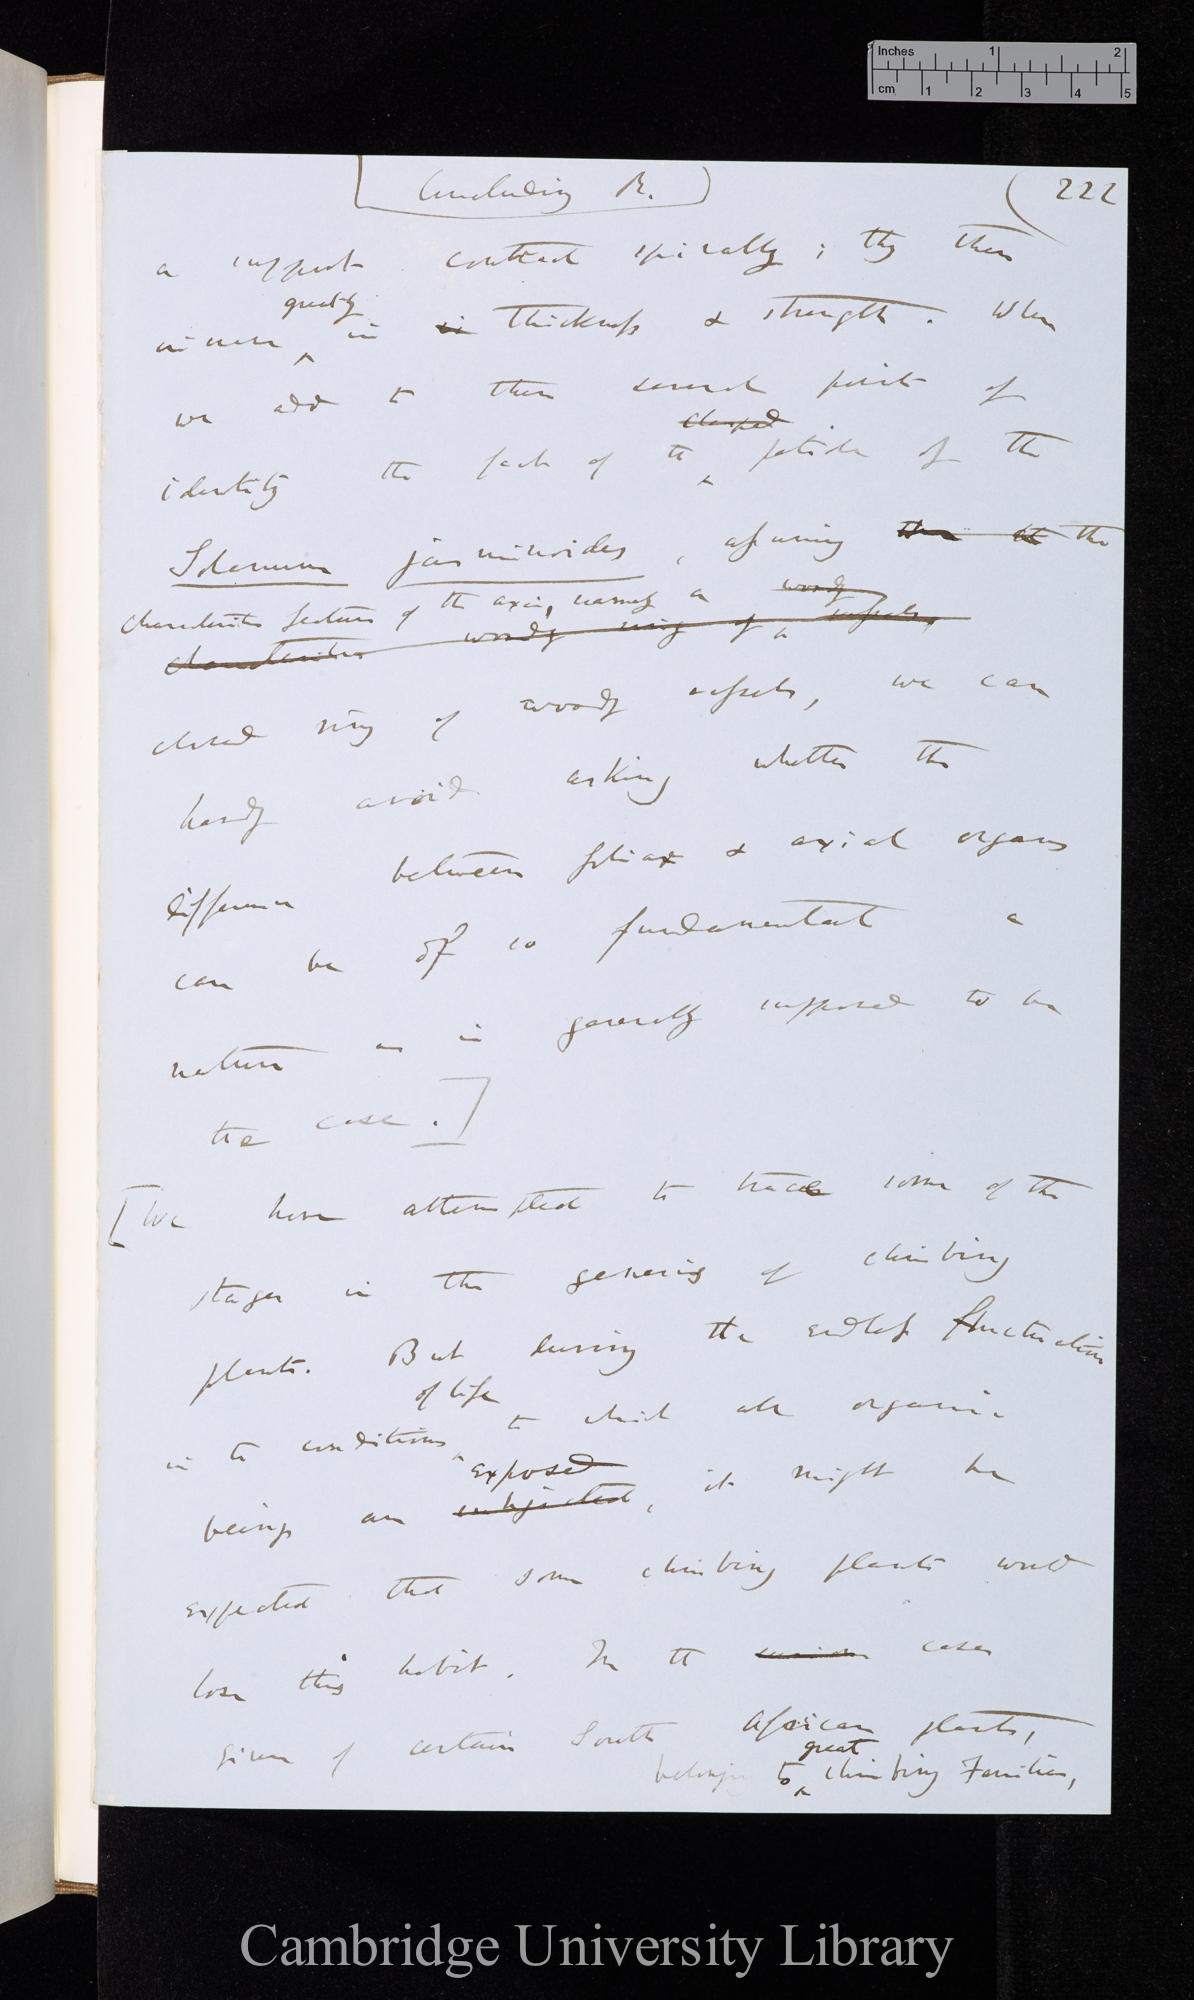 Inches 1 2
cm 1 2 3 4 5
Concluding R.
222
a support contract spirally; they then
greatly
increase in in thickness & strength. When
we add to these several points of
clasped
identity the fact of the petiole of the
Solanum jasminoides, assuming the
characteristic feature of the axis, namely a woody
characteristic woody ring of a vessels,
closed ring of woody vessels, we can
hardly avoid asking whether the
difference between foliar & axial organs
can be of so fundamental a
nature as is generally supposed to be
the case.]
[We have attempted to trace some of the
stages in the genesis of climbing
plants. But during the endless fluctuations
of life
in the conditions to which all organic
exposed
beings are subjected, it might be
expected that some climbing plants would
lose this habit. In the cases
given of certain South African plants,
great
belonging to climbing Families,
Cambridge University Library